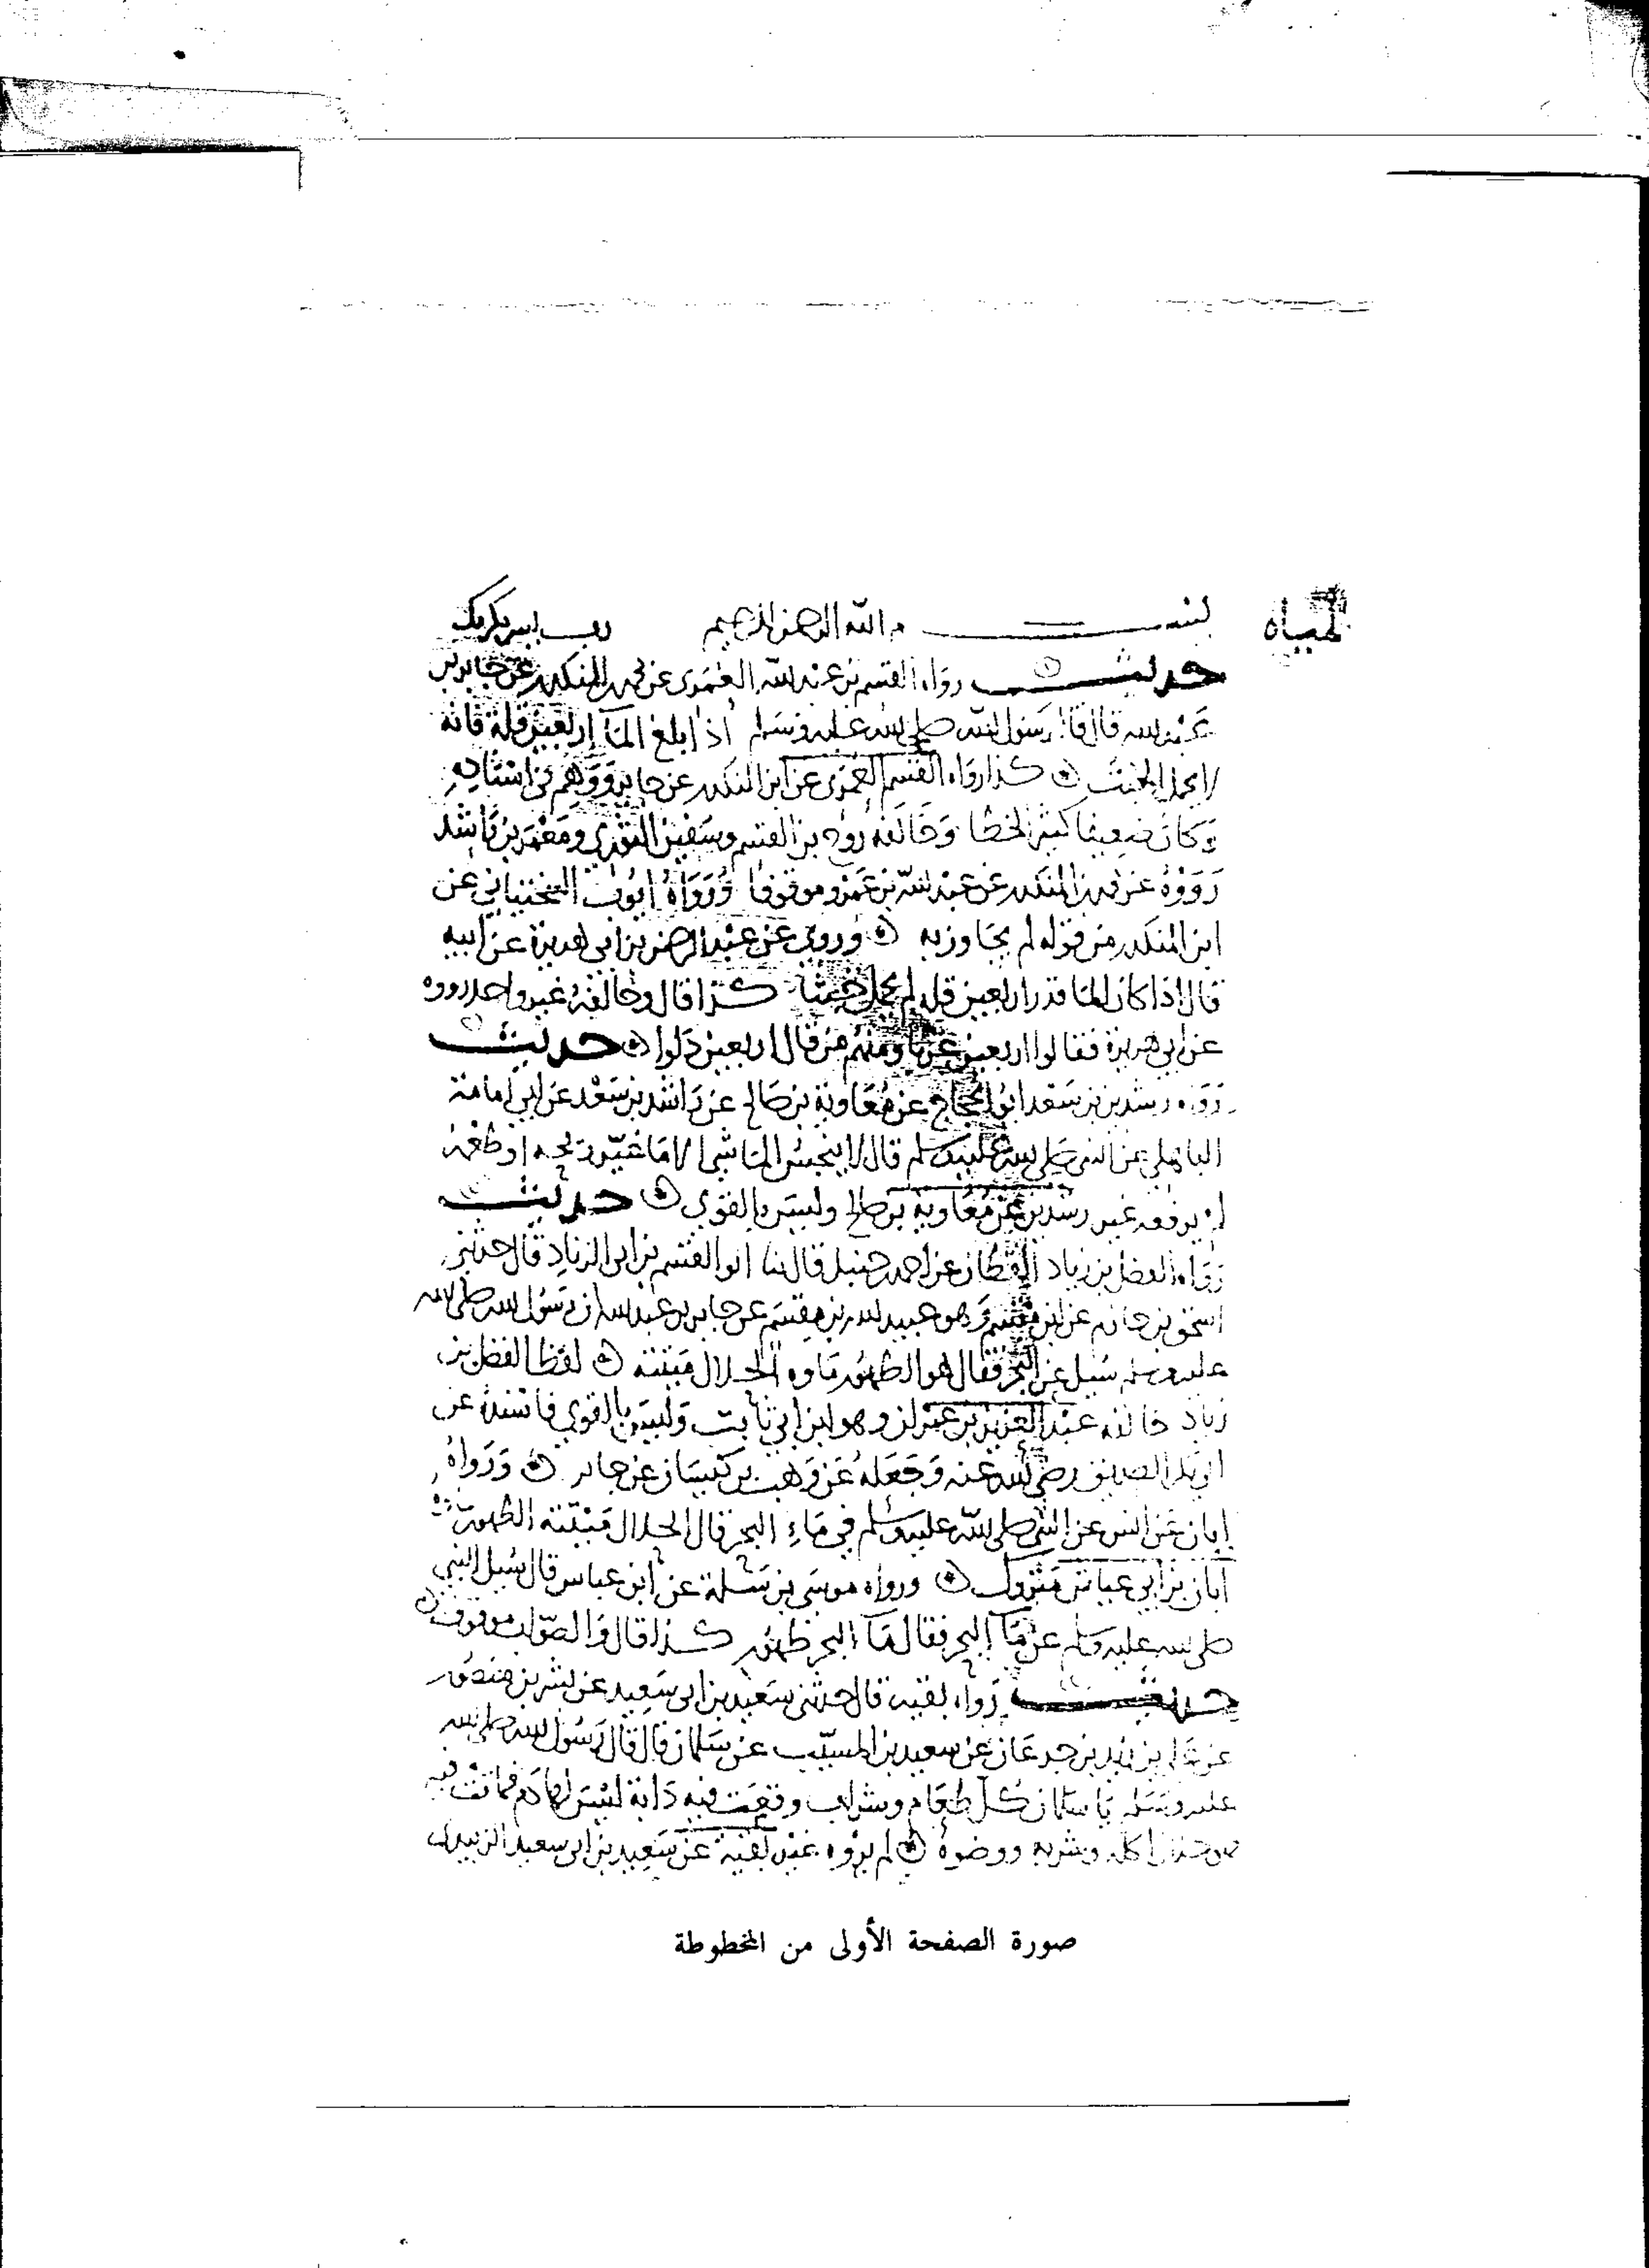 المياه
بسم الله الرحمن الرحيم رب يسر بكرمك
حديث رواه القسم بن عبد الله العمرى عن محمد بن المنكدر عن جابر بن
عبد الله قال قال رسول الله صلى الله عليه وسلم اذا بلغ الماء اربعين قلة فانه
لا يحمل الخبث كذا رواه القسم العمرى عن ابن المنكدر عن جابر ووهم فى اسناده
وكان ضعيفا كثير الخطا وخالفه روح بن القسم وسفين الثوري ومعمر بن راشد
رووه عن محمد بن المنكدر عن عبد الله بن عمرو موقوفا ورواه ايوب السختياني عن
ابن المنكدر من قوله لم يجاوز به وروى عن عبد الرحمن بن ابى هريرة عن ابيه
قال اذا كان الماء قدر اربعين قلة لم يحمل خبثا كذا قال وخالفه غير واحد رووه
عن ابى هريرة فقالوا اربعين غربا ومنهم من قال اربعين دلوا حديث
رواه رشدين بن سعد ابو الحجاج عن معاوية بن صالح عن راشد بن سعد عن ابي امامة
الباهلي عن النبى صلى الله عليه وسلم قال لا ينجس الماء شى الا ما غير ريحه او طعمه
لم يرفعه غير رشدين عن معاوية بن صالح وليس بالقوي حديث
رواه الفضل بن زياد القطان عن احمد بن حنبل قال نا ابو القسم بن ابى الزناد قال حدثنى
اسحق بن حازم عن ابن مقسم وهو عبيد الله بن مقسم عن جابر بن عبد الله ان رسول الله صلى الله
عليه وسلم سئل عن البحر فقال هو الطهور ماوه الحلال ميتته لفظ الفضل بن
زياد خالفه عبد العزيز بن عمران وهو ابن ابي ثابت وليس بالقوي فاسنده عن
ابى بكر الصديق رضي الله عنه وجعله عن وهب بن كيسان عن جابر ورواه
ابان عن انس عن النبى صلى الله عليه وسلم في ماء البحر قال الحلال ميتته الطهور
ابان بن ابى عياش متروك ورواه موسى بن سلمة عن ابن عباس قال سئل النبي
صلى الله عليه وسلم عن ماء البحر فقال ماء البحر طهور كذا قال والصواب موقوف
حديث رواه بقية قال حدثنى سعيد بن ابى سعيد عن بشر بن منصور
عن على بن زيد بن جدعان عن سعيد بن المسيب عن سلمان قال قال رسول الله صلى الله
عليه وسلم يا سلمان كل طعام وشراب وقعت فيه دابة ليس لها دم فماتت فيه
فهو حلال اكله وشربه ووضوه لم يروه غير بقية عن سعيد بن ابى سعيد الزبيدى
صورة الصفحة الأولى من المخطوطة